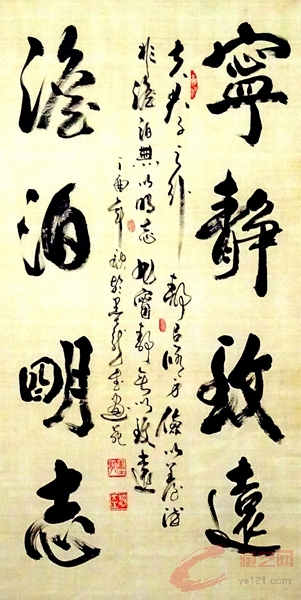 寧靜致遠
夫君子之行靜以修身儉以養德
非澹泊無以明志非寧靜無以致遠
澹泊明志
ya121.com